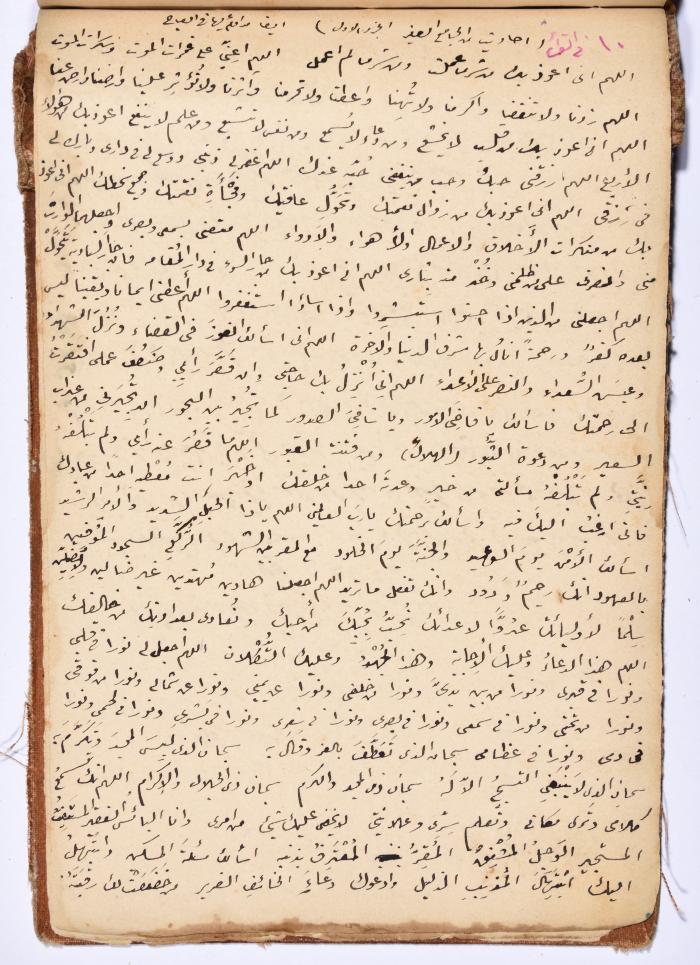 ١٠ في القرأ ( احاديث من الجامع الصغير الجزء الاول ) ايضا
اللهم انى اعوذ بك من شر ما عملت ومن شر ما لم اعمل اللهم اعنى على غمرات الموت وسكرات الموت
اللهم زدنا ولا تنقصنا واكرمنا ولا تُهِنا واعطنا ولا تحرمنا وآثرنا ولا تُؤثِر علينا وارضنا وارض عنا
اللهم انى اعوذ بك من قلب لا يخشع ومن دعاء لا يُسمع ومن نفس لا تشبع ومن علم لا ينفع اعوذ بك من هؤلاء
الأربع اللهم ارزقنى حبك وحب من ينفعنى حُبّه عندك اللهم اغفر لى ذنبى ووسع لى فى دارى وبارك لى
فى رزقى اللهم انى اعوذ بك من زوال نعمتك وتَحَوُّل عافيتك وفُجَاْءَةِ نقمتك وجميع سخطك اللهم انى اعوذ
بك من منكرات الأخلاق والاعمال والأهواء والأدواء اللهم متعنى بسمعى وبصرى واجعلهما الوارث
منى وانصرنى على من ظلمنى وخُذْ منه بثارى اللهم انى اعوذ بك من جار السوء فى دار المُقامه فان جار البادية يَتَحَوَّلُ
اللهم اجعلنى من الذين اذا احسنوا استبشروا واذا اساؤا استغفروا اللهم أعطنى ايمانا ويقينا ليس
بعده كفرٌ ورحمةً انال بها شرف الدنيا والآخرة اللهم انى اسألك الفوزَ فى القضاء ونُزُلَ الشهداء
وعيشَ السُّعداء والنصر على الأعداء اللهم انى أُنْزِلُ بك حاجتى وان قَصُرَ رأيى وضَعُفَ عملى افتَقَرْتُ
الى رحمتك فأسألك يا قاضى الأمور ويا شافىَ الصدور كما تُجِيرُ بين البحور ان تُجِيرَنى من عذاب
السعير ومن دعوة الثُّبُور (الهلاك) ومن فتنة القبور اللهم ما قَصُرَ عنه رأيى ولم تَبْلُغْهُ
نِيَّتى ولم تَبْلُغْهُ مسألتى من خيرٍ وعدتَه احدا من خلقك او خَيْرَ انت مُعْطِيه احدًا من عبادك
فانى ارغبُ اليك فيه واسألك برحمتك يا ربَّ العالمين اللهم يا ذا الحبلِ الشديد والأمر الرشيد
اسألك الأمْنَ يومَ الوعيد والجَنَّةَ يومَ الخلود مع المقربين الشهود الرُّكَّعِ السجود الموُفين
بالعهود انك رحيمٌ وَدُود وانك تفعل ما تريد اللهم اجعلنا هادين مُهتدين غير ضالين ولا مُضِلّين
سِلْمًا لأوليائك عدُوًّا لاعدائك نُحِبُّ بحُبِّكَ من أحبك ونُعادى بعداوتك من خالفك
اللهم هذا الدعاءُ وعليك الإجابةُ وهذا الجُهْدُ وعليك التُّكْلان اللهم اجعل لى نورا فى قلبى
ونورا فى قبرى ونورا من بين يدىَّ ونورا من خلفى ونورا عن يمينى ونورا عن شمالى ونورا من فوقى
ونورا من تحتى ونورا فى سمعى ونورا فى بصرى ونورا فى شعرى ونورا فى بشرى ونورا فى لحمى ونورا
فى دمى ونورا فى عظامى سبحان الذى تَعَطَّفَ بالعز وقَالَ به سبحان الذى لبس المجدَ وتكرَّمَ به
سبحان الذى لا يَنْبَغِى التسبيحُ الا لَهُ سبحان ذى المجد والكرم سبحان ذى الجلال والإكرام اللهم انك تَسمَعُ
كلامى وتَرى مكانى وتعلم سِرّى وعلانيتى لا يخفى عليك شئ من امرى وانا البائسُ الفقيرُ المستغيثُ
المستجير الوجلُ المُشْفِقُ المُقِرُّ المُعْتَرِفُ بذنبه اسألك مسألةَ المسكين وابْتَهِلُ
اليك ابْتِهَالَ المُذْنِبِ الذليل وادعوك دعاءَ الخائف الضرير من خَضَعَتْ لك رقبَتُهُ